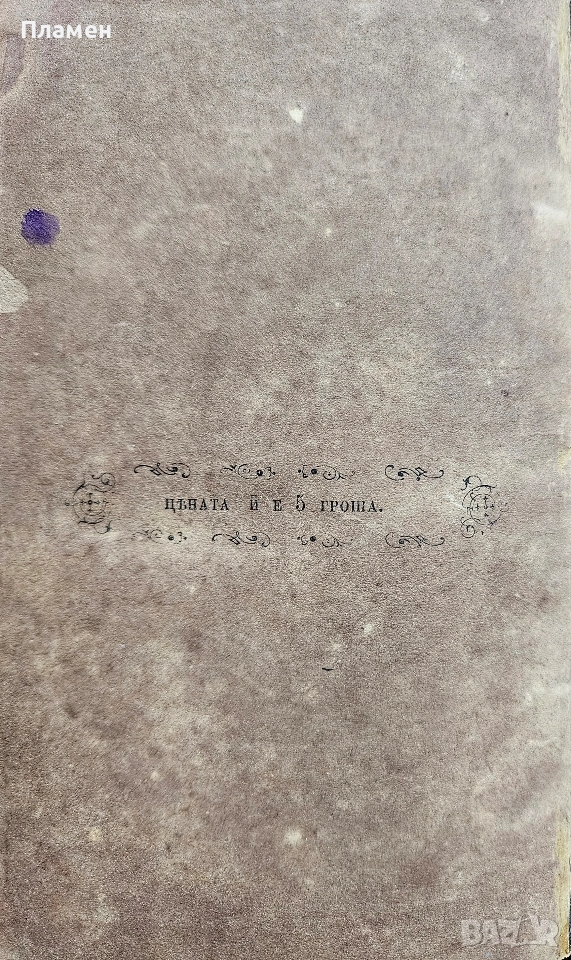 Пламен
ЦѢНАТА Й Е 5 ГРОША.
BAZAR